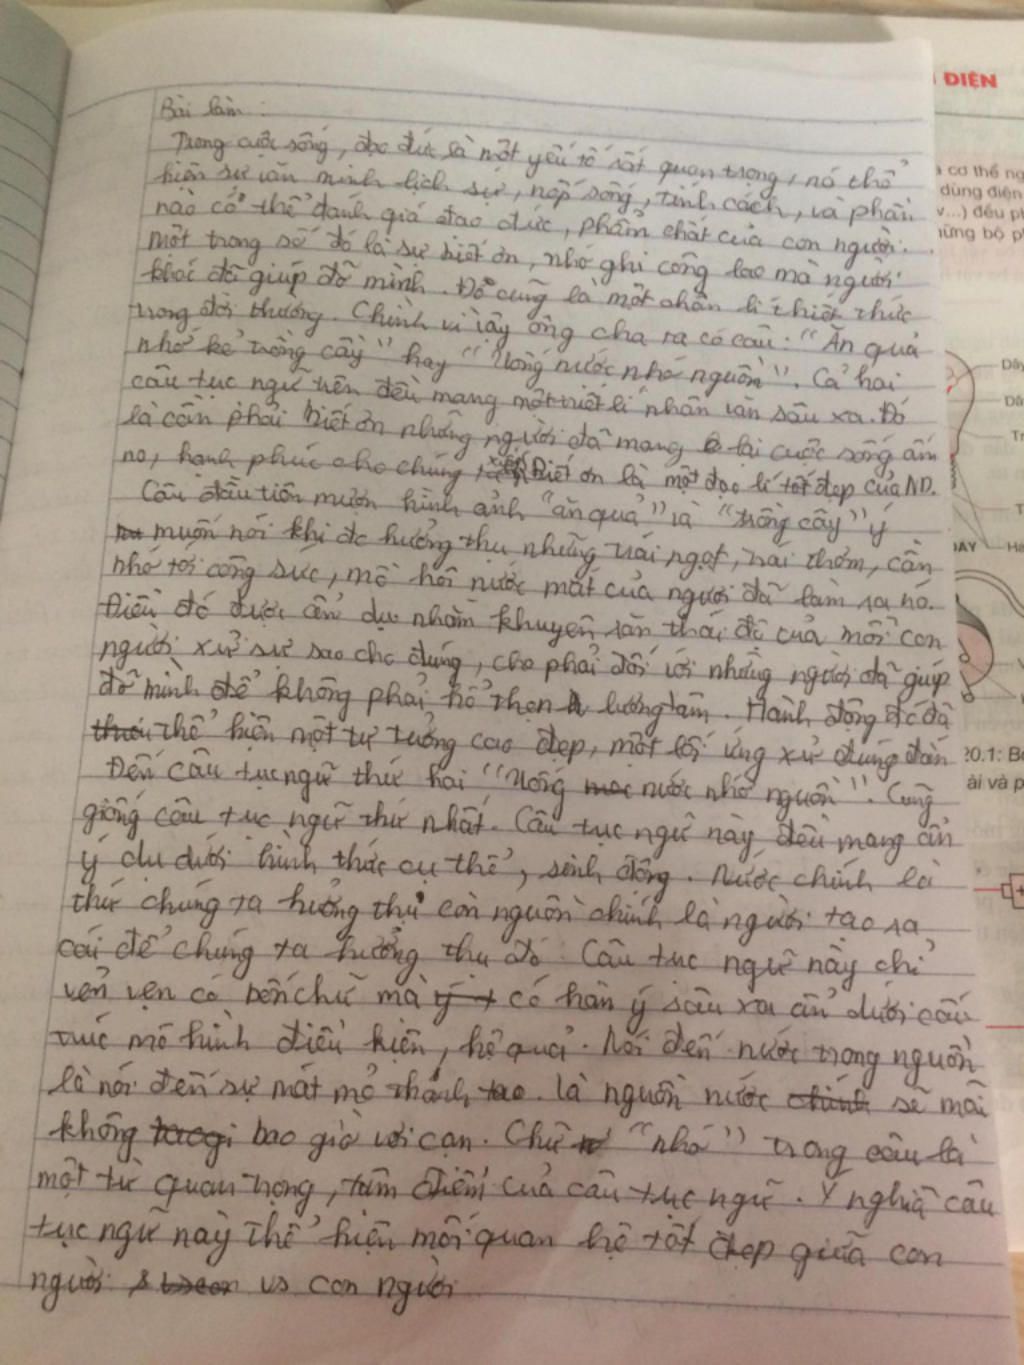 Bài làm:
Trong cuộc sống, đạo đức là một yếu tố rất quan trọng, nó thể
hiện sự văn minh lịch sự, nếp sống, tính cách, và phần
nào có thể đánh giá đạo đức, phẩm chất của con người.
một trong số đó là sự biết ơn, nhớ ghi công lao mà người
khác đã giúp đỡ mình. Đó cũng là một chân lí thiết thức
trong đời thường. Chính vì vậy ông cha ra có câu: "Ăn quả
nhớ kẻ trồng cây" hay "Uống nước nhớ nguồn". Cả hai
câu tục ngữ trên đều mang một triết lí nhân văn sâu xa. Đó
là cần phải biết ơn những người đã mang lại cuộc sống ấm
no, hạnh phúc cho chúng Biết ơn là một đạo lí tốt đẹp của ND.
Câu đầu tiên mượn hình ảnh "ăn quả" và "trồng cây" ý
muốn nói khi đc hưởng thụ những trái ngọt, trái thơm, cần
nhớ tới công sức, mồ hôi nước mắt của người đã làm ra nó.
Điều đó được ẩn dụ nhằm khuyên răn thái độ của mỗi con
người xử sự sao cho đúng, cho phải đối với những người đã giúp
đỡ mình để không phải hổ thẹn lương tâm. Hành động đó đã
thể hiện một tư tưởng cao đẹp, một lối ứng xử đúng đắn
Đến câu tục ngữ thứ hai "Uống nước nhớ nguồn". Cũng
giống câu tục ngữ thứ nhất. Câu tục ngữ này đều mang ẩn
ý dụ dưới hình thức cụ thể, sinh động. Nước chính là
thứ chúng ta hưởng thụ còn nguồn chính là người tạo ra
cái để chúng ta hưởng thụ đó. Câu tục ngữ này chỉ
vẻn vẹn có bốn chữ mà có hàn ý sâu xa ẩn dưới cấu
trúc mô hình điều kiện, hệ quả. Nói đến nước trong nguồn
là nói đến sự mát mẻ là nguồn nước sẽ mãi
không bao giờ vơi cạn. Chữ "nhớ" trong câu là
một từ quan trọng, tâm điểm của câu tục ngữ. Ý nghĩa câu
tục ngữ này thể hiện mối quan hệ tốt đẹp giữa con
người vs con người
ĐIỆN
cơ thể ng
dùng điện
v...) đều ph
ững bộ p
Dây
20.1: B
ài và p